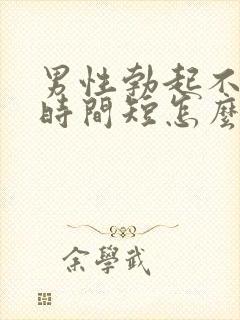 男性勃起不
時間短怎麼
余學武